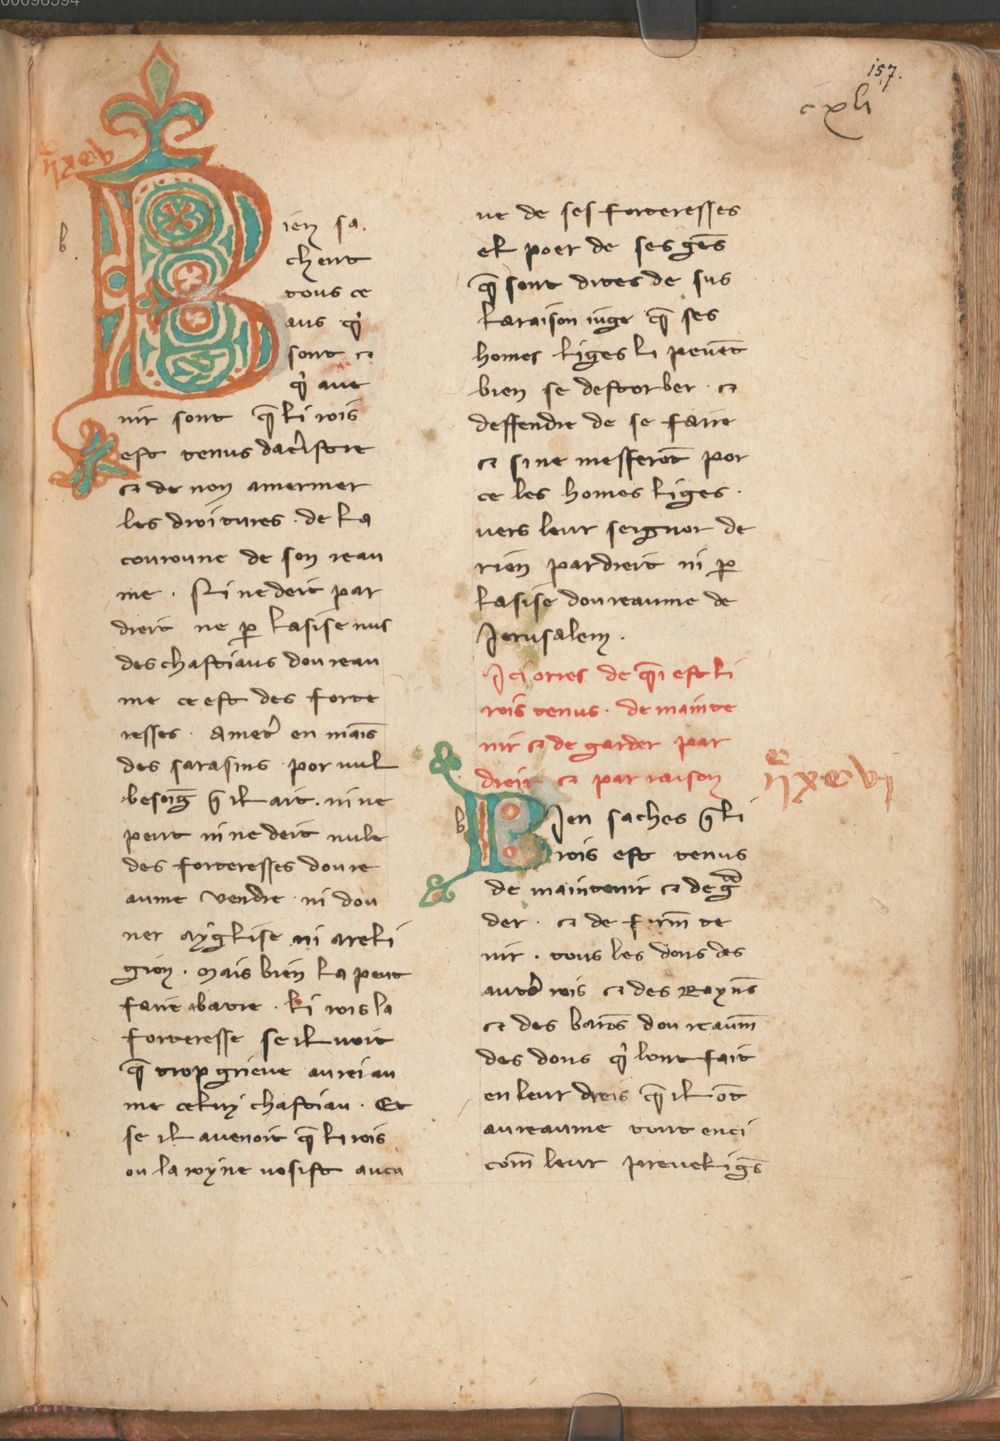 00096594
157.
cxli
ij xcv
b.
Bien sa.
chent
tous ce
aus q̓
sont ⁊
q̓ aue
nir sont q̄ li rois
est tenus dacr̓istre
⁊ de non amermer
les droitures · de la
couroune de son reau
me · Ni ne deit par
dreit ne ꝑ lasise nus
des chastiaus dou reau
me ce est des forte
resses · ametr̓ en mais̄
des sarasins · por nul
besoiḡ q̄ il ait · ni ne
peut ni ne deit nule
des forteresses dou re
aume vendre · ni dou
ner ayglise ni areli
gion · mais bien la peut
faire abatre · li rois la
forteresse se il voit
q̄ trop grieue au reiau
me celuy chastiau · Et
se il auenoit q̄ li rois
ou la royne vosist aucu
ne de ses forteresses
el poer de ses gēs
q̄ sont dites de sus
la raison iuge q̄ ses
homes liges li peuēt
bien se destorber · ⁊
deffendre de se faire
⁊ si ne mesferōt por
ce les homes liges ·
uers leur seignor de
rien par dreit ni ꝑ
lasise dou reaume de
Jerusalem ·
Ici orres de q̄i est li
rois tenus · de mainte
nir ⁊ de garder par
dreit ⁊ par raison
ij xcvi
b
Bien saches q̄ li
rois est tenus
de maintenir ⁊ de gͣr
der · ⁊ de firm̄ te
nir · tous les dons des
autr̓ rois ⁊ des Roynēs
⁊ des barōs dou reaum̄
des dons q̓ lont fait
en leur dreis q̄ il ōt
au reaume tout enci
com̄ leur preueligēs